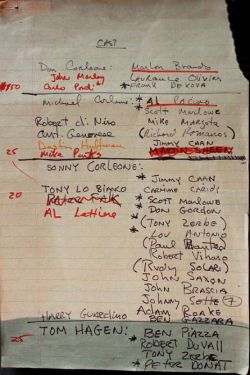 CAST
Don Corleone: Marlon Brando
John Marley Laurence Olivier
*FRANK DE KOVA
Michael Corleone: *AL PACINO
*Scott Marlowe
Robert di Niro Mike Margota
(Richard Romanus)
Dustin Hoffman JIMMY CAAN
MARTIN SHEEN
25
SONNY CORLEONE:
*JIMMY CAAN
TONY LO BIANCO CARMINE CARIDI
20 PETER FALK *SCOTT MARLOWE
AL Lettieri *DON GORDON
*(TONY ZERBE)
*LOU ANTONIO
(Paul Mantee)
Robert Viharo
(Rudy SOLARI)
JOHN SAXON
JOHN BRASCIA
Johnny Sette 7
Adam ROAKE
HARRY GUARDINO BEN GAZZARA
TOM HAGEN: *BEN PIAZZA
25 ROBERT DUVALL
TONY ZERBE
*PETER DONAT